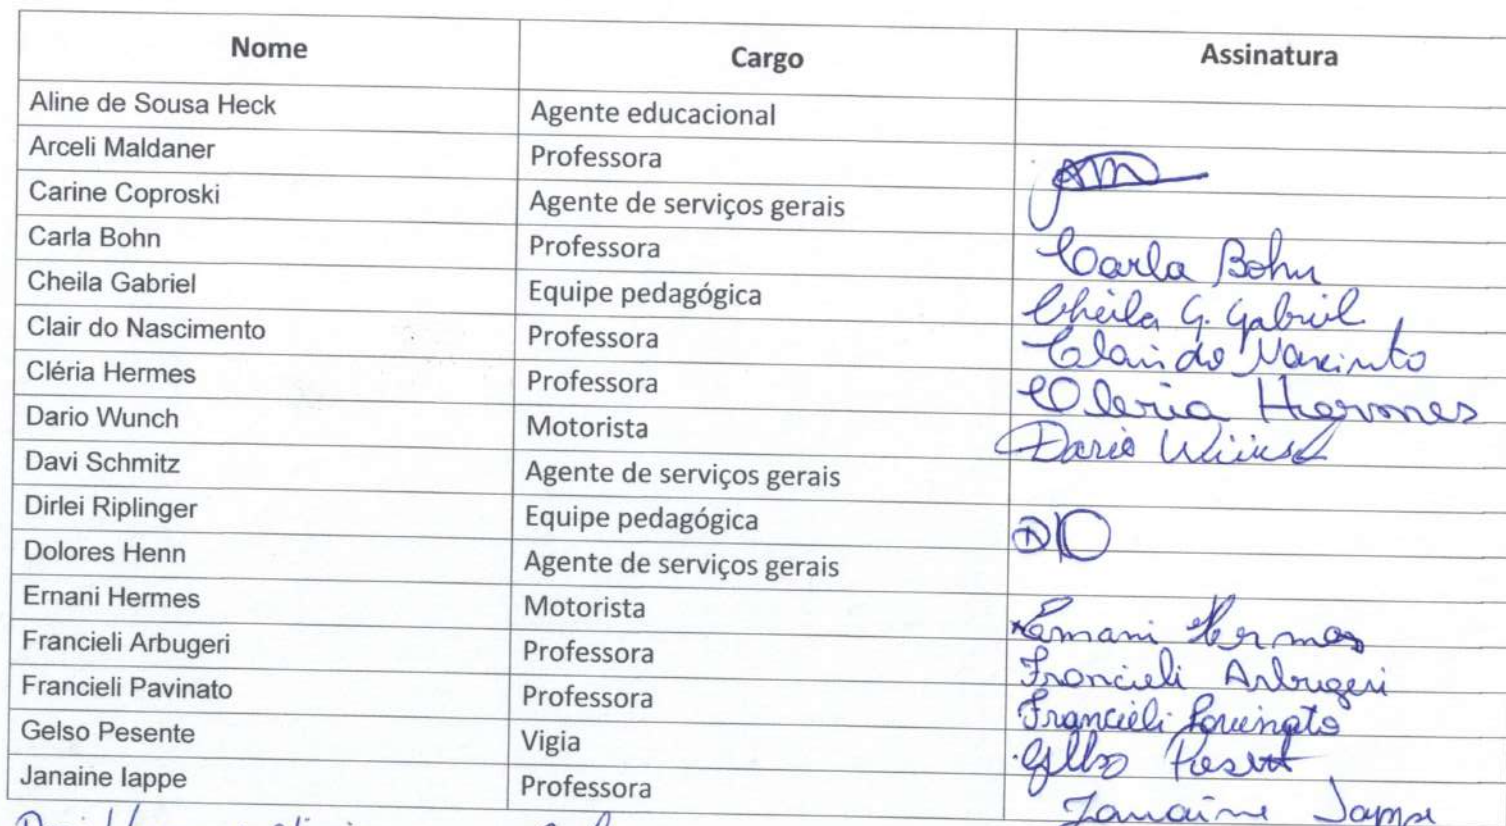 Nome Cargo Assinatura
Aline de Sousa Heck Agente educacional
Arceli Maldaner Professora AM
Carine Coproski Agente de serviços gerais
Carla Bohn Professora Carla Bohn
Cheila Gabriel Equipe pedagógica Cheila G. Gabriel
Clair do Nascimento Professora Clair do
Cléria Hermes Professora Cleria Hermes
Dario Wunch Motorista Dario
Davi Schmitz Agente de serviços gerais
Dirlei Riplinger Equipe pedagógica
Dolores Henn Agente de serviços gerais
Ernani Hermes Motorista Ernani Hermes
Francieli Arbugeri Professora Francieli Arbugeri
Francieli Pavinato Professora Francieli Pavinato
Gelso Pesente Vigia Gelso
Janaine Iappe Professora Janaine Iappe